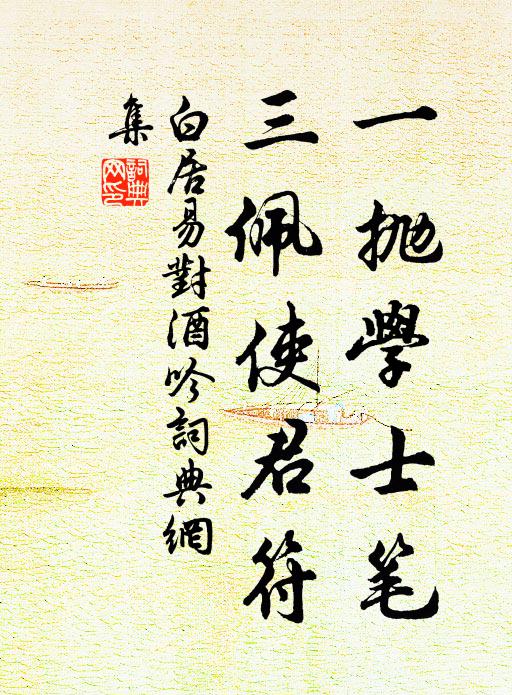 一抛學士笔
三佩使君符
白居易對酒吟詞典網
集
詞典
网印